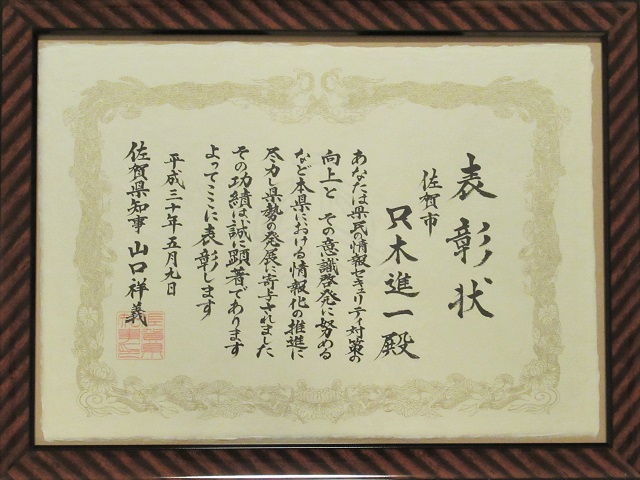 表彰状
佐賀市
只木進一殿
あなたは県民の情報セキュリティ対策の
向上と その意識啓発に努める
など本県における情報化の推進に
尽力し県勢の発展に寄与されました
その功績は誠に顕著であります
よってここに表彰します
平成三十年五月九日
佐賀県知事 山口祥義